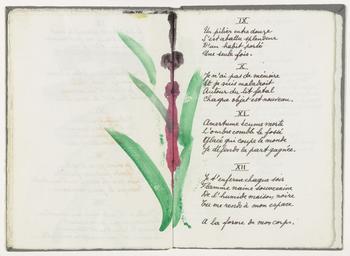 IX
Un pilier entre douze
S'est abattu splendeur
D'un habit porté
Une seule fois.
X
Je n'ai pas de mémoire
Et je suis maladroit
Autour du lit fatal
Chaque objet est nouveau.
XI
Amertume écume morte
L'ombre comble le fossé
qui coupe le monde
Je défends la part gagnée.
XII
Je t'enferme chaque soir
Flamme naine souveraine
De l'humide maison noire
Tu me rends à mon espace
A la forme de mon corps.